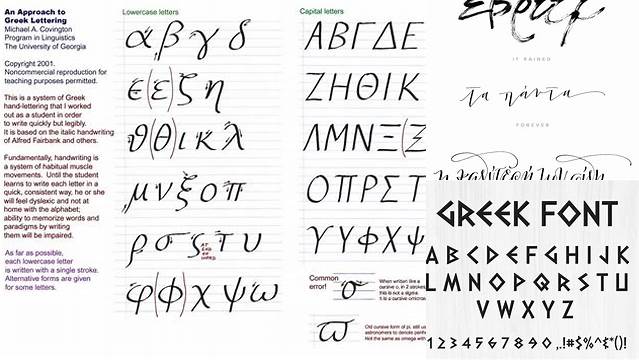 An Approach to
Greek Lettering
Michael A. Covington
Program in Linguistics
The University of Georgia
Copyright 2001.
Noncommercial reproduction for
teaching purposes permitted.
This is a system of Greek
hand-lettering that I worked
out as a student in order
to write quickly but legibly.
It is based on the italic handwriting
of Alfred Fairbank and others.
Fundamentally, handwriting is
a system of habitual muscle
movements. Until the student
learns to write each letter in a
quick, consistent way, he or she
will feel dyslexic and not at
home with the alphabet;
ability to memorize words and
paradigms by writing
them will be impaired.
As far as possible,
each lowercase letter
is written with a single stroke.
Alternative forms are given
for some letters.
Lowercase letters
α β γ δ
ε (ε) ζ η
ϑ (θ) ι κ λ
μ ν ξ ο π
ρ σ ς τ υ
AT
END
OF
WORD
φ (φ) χ ψ ω
Capital letters
Α Β Γ Δ Ε
Ζ Η Θ Ι Κ
Λ Μ Ν Ξ (Ξ
Ο Π Ρ Σ Τ
Υ Υ Φ Χ Ψ
Common
error!
σ
When written like a
cursive o, in 2 strokes
this is not a sigma
it is a cursive omicron
ϖ
Old cursive form of pi, still us
astronomers to denote perih
Not the same as omega with
IT RAINED
τα πάντα
FOREVER
GREEK FONT
A B C D E F G H I J K
L M N O P Q R S T U
V W X Y Z
1 2 3 4 5 6 7 8 9 0 ,.!#$%^&*()!